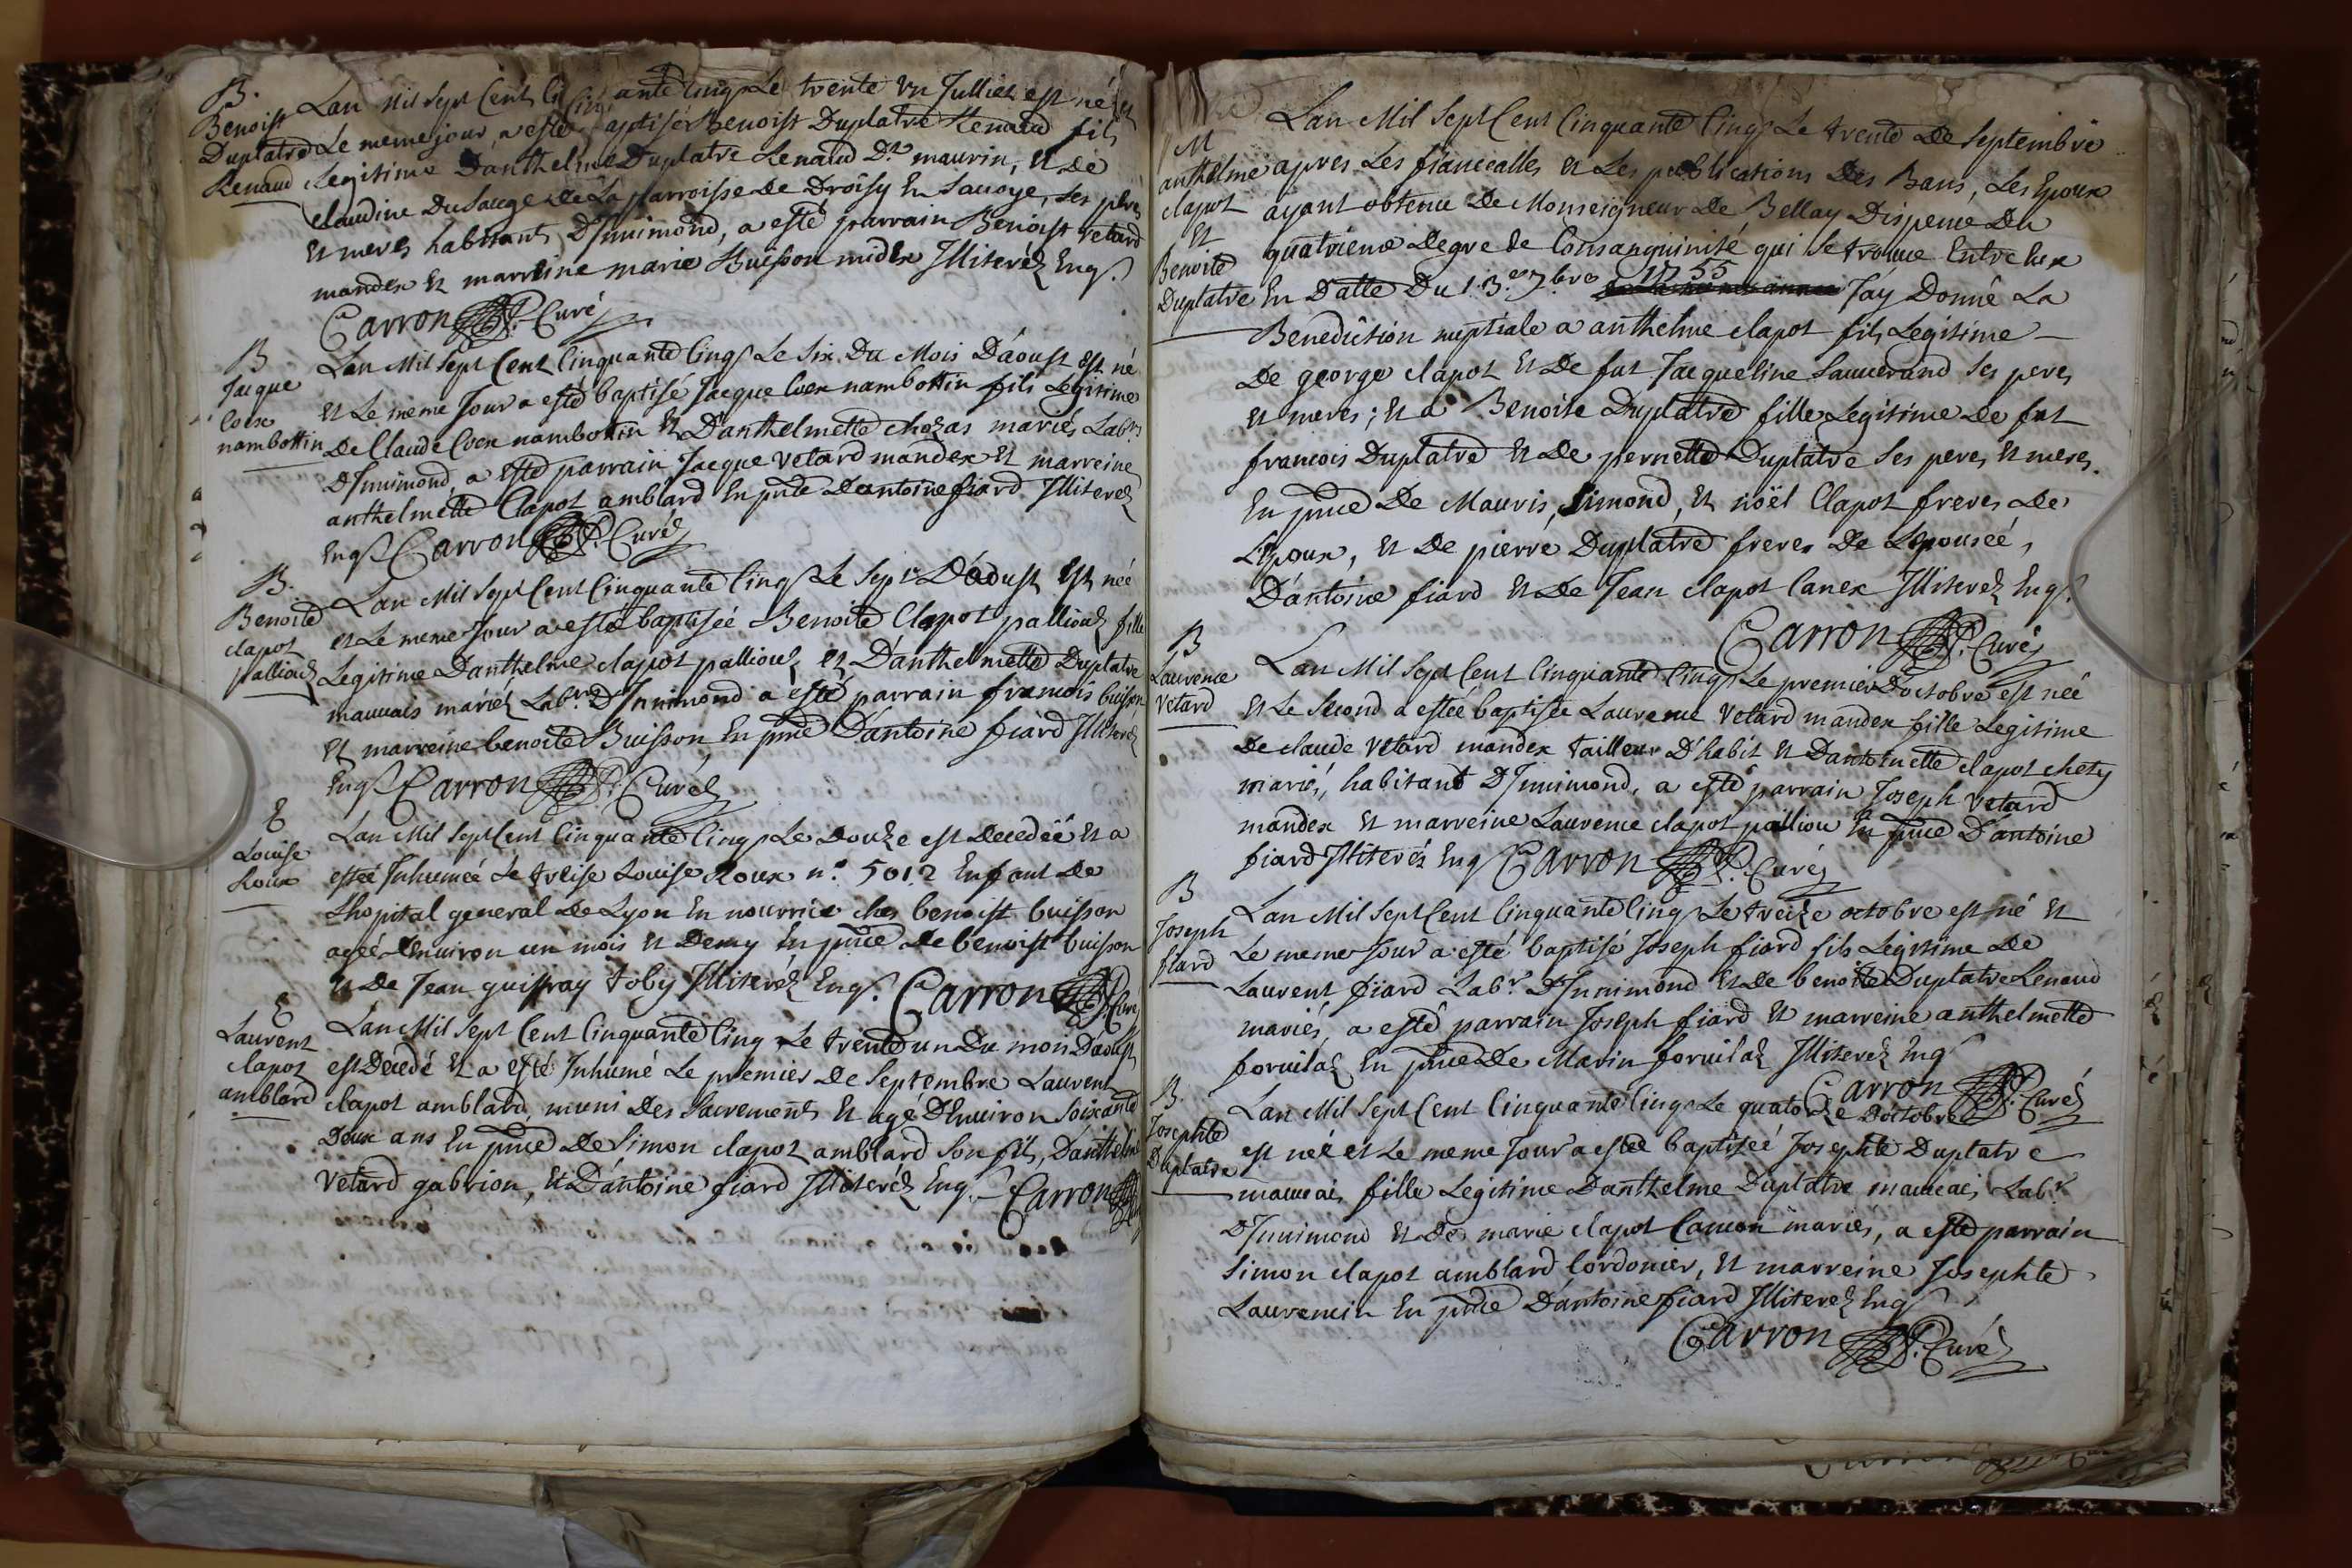 B.
Benoist
Duplatre
Renaud
Lan Mil Sept Cent Cinquante Cinq Le trente un Julliet est né et
Le meme jour a esté baptisé Benoist Duplatre Renaud fils
Legitime Danthelme Duplatre Renaud Dt maurin, et de
claudine Dusauge de La parroisse de Droisy En Savoye, ses peres
et meres habitants D'Innimond, a esté parrain Benoist vetard
mandex et marreine marie Buisson midex Illiteréz Enqs.
Carron Curé
B
Jaque
Coex
nambottin
Lan Mil Sept Cent Cinquante Cinq Le Six Du Mois D'aoust est né
et Le meme Jour a esté baptisé Jacque Coex nambottin fils Legitime
De Claude Coex nambottin et D'anthelmette chozas mariés Labrs
D'Innimond, a esté parrain Jacque vetard mandex et marreine
anthelmette Clapot amblard En pnce D'antoine fiard Illiterez
Enqs Carron Curé
B.
Benoite
clapot
palliouz
Lan Mil Sept Cent Cinquante Cinq Le Sept D'aoust est neé
et Le meme Jour a esté baptisée Benoite Clapot palliouz fille
Legitime Danthelme clapot palliouz et D'anthelmette Duplatre
mauvais mariéz Labrs D'Innimond a esté parrain francois buisson
et marreine benoite Buisson En pnce D'antoine fiard Illiteréz
Enqs Carron Curé
E
Louise
Roux
Lan Mil Sept Cent Cinquante Cinq Le Douze est Decedeé et a
esteé Inhumeé Le treise Louise Roux n.° 5012 Enfant De
Lhopital general De Lyon En nourrice ches benoist buisson
ageé Denviron un mois et Demy En pnce De benoist buisson
et De Jean guiffray toby Illiteréz Enqs. Carron Curé
E
Laurent
clapot
amblard
Lan Mil Sept Cent Cinquante Cinq Le trente un Du mois Daoust
est Decedé et a esté Inhumé Le premier De Septembre Laurent
clapot amblard, muni Des Sacrements et agé D'Environ Soixante
Deux ans En pnce De Simon clapot amblard Son fils, D'anthelme
vetard gabrion, et D'antoine fiard Illiteréz Enqs. Carron
M
anthelme
clapot
et
Benoite
Duplatre
Lan Mil Sept Cent Cinquante Cinq Le trente De Septembre
apres Les fiancealles et Les publications Des Bans, Les Epoux
ayant obtenue De Monseigneur De Bellay Dispense Du
quatrieme Degre de Consanguinité qui Se trouve Entre Eux
En Datte Du 13.e 7.bre 1755 Jay Donné La
Benediction nuptiale a anthelme clapot fils Legitime
De george clapot et De fut Jacqueline Sauverand Ses peres
et meres; et a Benoite Duplatre fille Legitime De fut
francois Duplatre et De pernette Duplatre Ses peres et meres.
En pnce De Mauris, Simond, et noël Clapot freres De
L'Epoux, et De pierre Duplatre freres De Lepouseé,
D'antoine fiard et De Jean clapot Canex Illiterez Enqs.
Carron Curé
B
Laurence
vetard
Lan Mil Sept Cent Cinquante Cinq Le premier D'octobre est neé
et Le Second a esteé baptisée Laurence vetard mandex fille Legitime
De claude vetard mandex tailleur D'habit et Dantoinette clapot chety
mariés, habitant D'Innimond, a esté parrain Joseph vetard
mandex et marreine Laurence clapot palliou En pnce D'antoine
fiard Illiteréz Enqs Carron Curé
B
Joseph
fiard
Lan Mil Sept Cent Cinquante Cinq Le treize octobre est né et
Le meme Jour a esté baptisé Joseph fiard fils Legitime De
Laurent fiard Labr. D'Innimond et De benoite Duplatre Renaud
mariés, a esté parrain Joseph fiard et marreine anthelmette
forvilaz En pnce De Marin forvilaz Illiterez Enqs
Carron Curé
B.
Josephte
Duplatre
Lan Mil Sept Cent Cinquante Cinq Le quatorze D'octobre
est neé et Le meme Jour a esteé baptiseé Josephte Duplatre
mauvais fille Legitime Danthelme Duplatre mauvais Labr.
D'Innimond et De marie clapot Camon mariés, a esté parrain
Simon clapot amblard Cordonier, et marreine Josephte
Laurencin En pnce D'antoine fiard Illiterez Enqs
Carron Curé